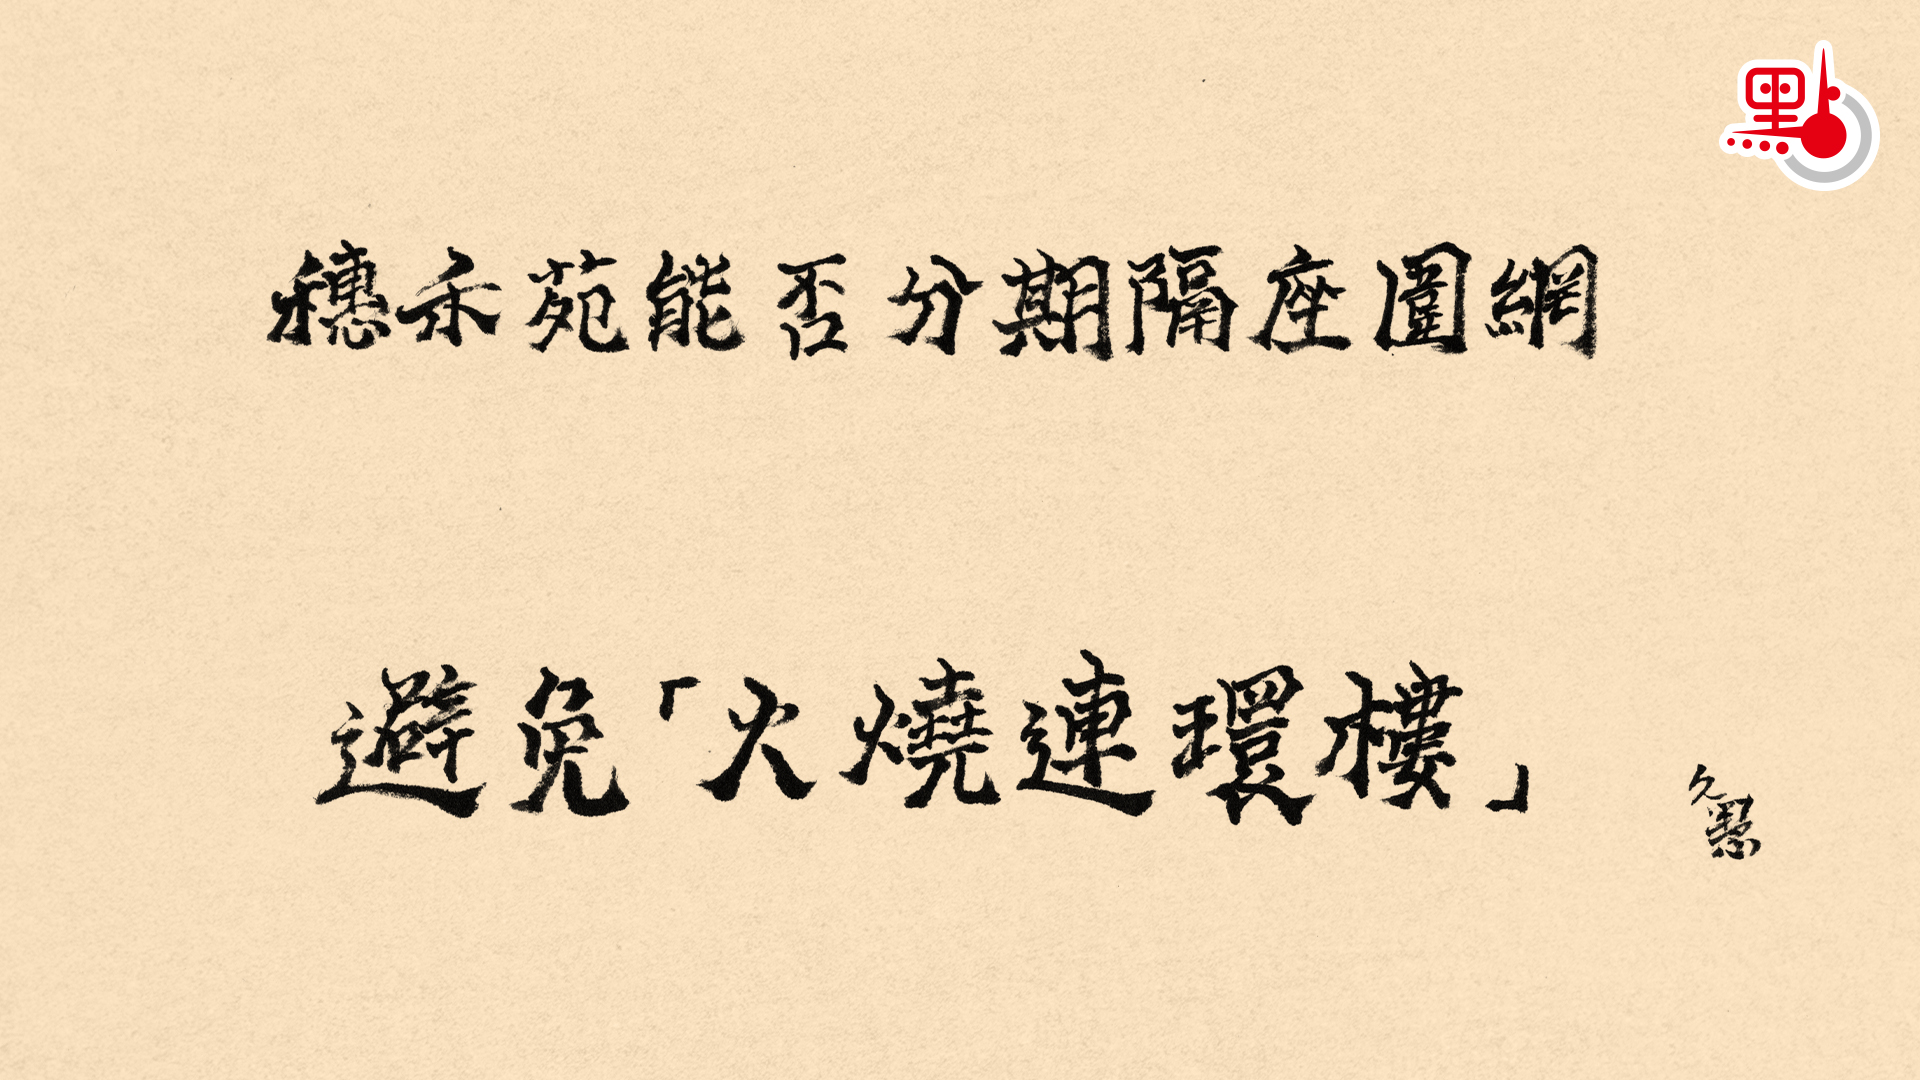 點
穗禾苑能否分期隔座圍網
避免「火燒連環樓」